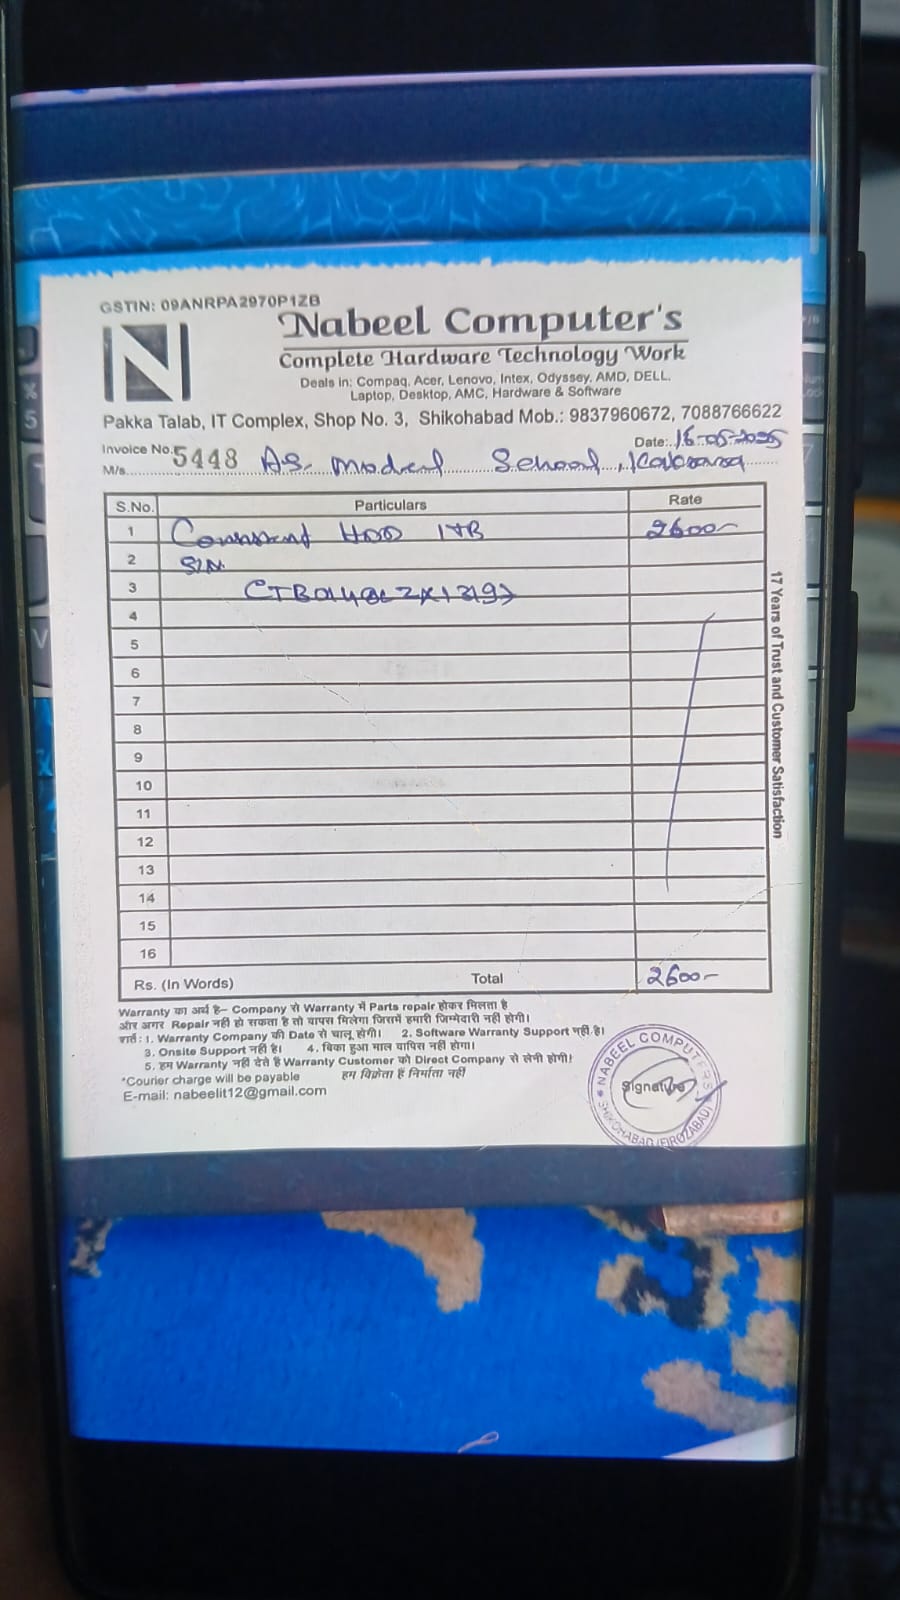 GSTIN: 09ANRPA2970P1ZB
N
Nabeel Computer's
Complete Hardware Technology Work
Deals in: Compaq, Acer, Lenovo, Intex, Odyssey, AMD, DELL,
Laptop, Desktop, AMC, Hardware & Software
Pakka Talab, IT Complex, Shop No. 3, Shikohabad Mob.: 9837960672, 7088766622
Invoice No. 5448 Date: 16-05-2025
M/s. A.S. School
S.No. Particulars Rate
1 HDD 1TB 2600-
2 S/N.
3
4
5
6
7
8
9
10
11
12
13
14
15
16
Rs. (In Words) Total 2600-
17 Years of Trust and Customer Satisfaction
Warranty का अर्थ है– Company से Warranty में Parts repair होकर मिलता है
और अगर Repair नही हो सकता है तो वापस मिलेगा जिसमें हमारी जिम्मेदारी नहीं होगी।
शर्ते: 1. Warranty Company की Date से चालू होगी। 2. Software Warranty Support नहीं है।
3. Onsite Support नही है। 4. बिका हुआ माल वापिस नहीं होगा।
5. हम Warranty नहीं देते है Warranty Customer को Direct Company से लेनी होगी!
*Courier charge will be payable हम विक्रेता हैं निर्माता नहीं
E-mail: nabeelit12@gmail.com
NABEEL COMPUTERS
Signature
SHIKOHABAD (FIROZABAD)